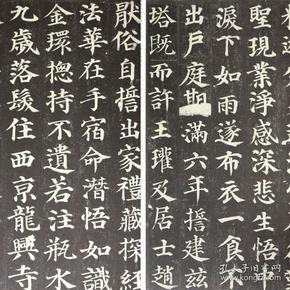 聖現業淨感深悲生悟
淚下如雨遂布衣一食
出戶庭期滿六年誓建茲
塔既而許王瓘及居士趙
厭俗自誓出家禮藏探經
法華在手宿命潛悟如識
金環揔持不遺若注瓶水
九歲落髮住西京龍興寺